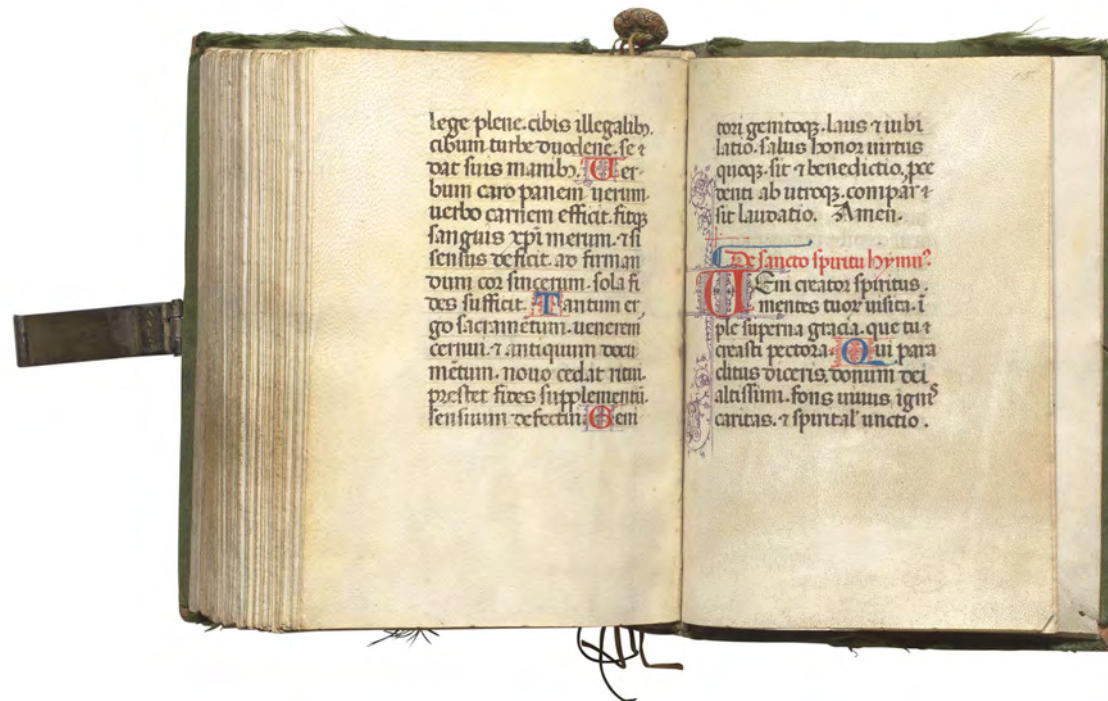 lege plene. cibis illegalibȝ.
cibum turbe duodene. se ⁊
dat suis manibȝ. Uer-
bum caro panem uerum.
uerbo carnem efficit. fitqȝ
sanguis xpi merum. ⁊ si
sensus deficit. ad firman
dum cor sincerum. sola fi
des sufficit. Tantum er,
go sacramētum. uenerem
cernui. ⁊ antiquum docu
mētum. nouo cedat ritui.
prestet fides supplementū.
sensuum defectui. Geni
tori genitoqȝ. laus ⁊ iubi
latio. salus honor uirtus
quoqȝ. sit ⁊ benedictio, pce
denti ab utroqȝ. compar ⁊
sit laudatio. Amen.
De sancto spiritu hymnꝰ
UEni creator spiritus.
mentes tuoꝝ uisita. ī
ple superna gracia. que tu ⁊
creasti pectora. Qui para
clitus diceris. donum dei
altissimi. fons uiuus ignꝰ
caritas. ⁊ spirital' unctio.